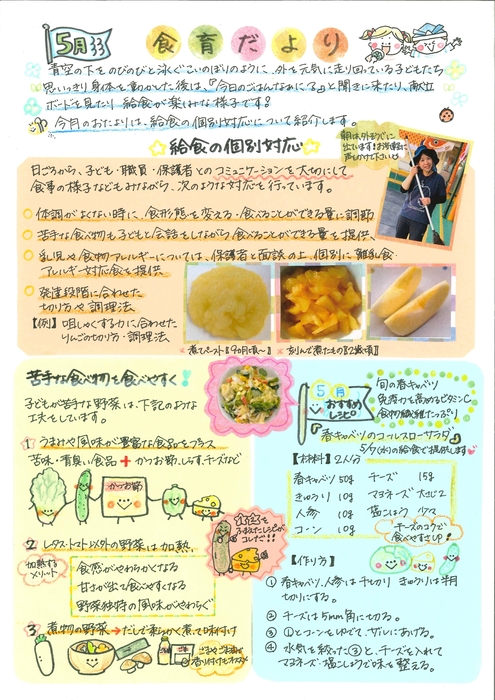 5月
食育だより
青空の下をのびのびと泳ぐこいのぼりのように、外を元気に走り回っている子どもたち
思いっきり身体を動かした後は、『今日のごはんなあに?』と聞きに来たり、献立
ボードを見たり、給食が楽しみな様子です!
今月のおたよりは、給食の個別対応について紹介します。
給食の個別対応
日ごろから、子ども・職員・保護者とのコミュニケーションを大切にして
食事の様子などもみながら、次のような対応を行っています。
体調がよくない時に、食形態を変える・食べることができる量に調節
苦手な食べ物も子どもと会話をしながら食べることができる量を提供、
乳児や食物アレルギーについては、保護者と面談の上、個別に離乳食・
アレルギー対応食を提供
発達段階に合わせた
切り方や調理法
【例】咀しゃくする力に合わせた
りんごの切り方・調理法
朝は外そうじに
出ています!お気軽に
声かけ下さい
煮てペースト
刻んで煮たもの
苦手な食べ物を食べやすく!
子どもが苦手な野菜は、下記のような
工夫をしています。
1 うまみや風味が豊富な食品をプラス
苦味・青臭い食品+かつお節、しらす、チーズなど
かつお節
2 レタス・トマト以外の野菜は加熱
加熱する
メリット
食感がやわらかくなる
甘さが出て食べやすくなる
野菜独特の風味がやわらぐ
3 煮物の野菜→だしで柔らかく煮て味付け
5月
おすすめ
レシピ
旬の春キャベツ
免疫力を高めるビタミンC
食物繊維たっぷり
春キャベツのコールスローサラダ
5/7(水)の給食で提供します
【材料】2人分
春キャベツ 50g チーズ 15g
きゅうり 10g マヨネーズ 大さじ2
人参 10g 塩こしょう 少々
コーン 10g
チーズのコクで
食べやすさUP!
【作り方】
① 春キャベツ、人参は千切り きゅうりは半月
切りにする。
② チーズは5mm角に切る。
③ ①とコーンをゆでて、ザルにあげる。
④ 水気を絞った③と、チーズを入れて
マヨネーズ・塩こしょうで味を整える。